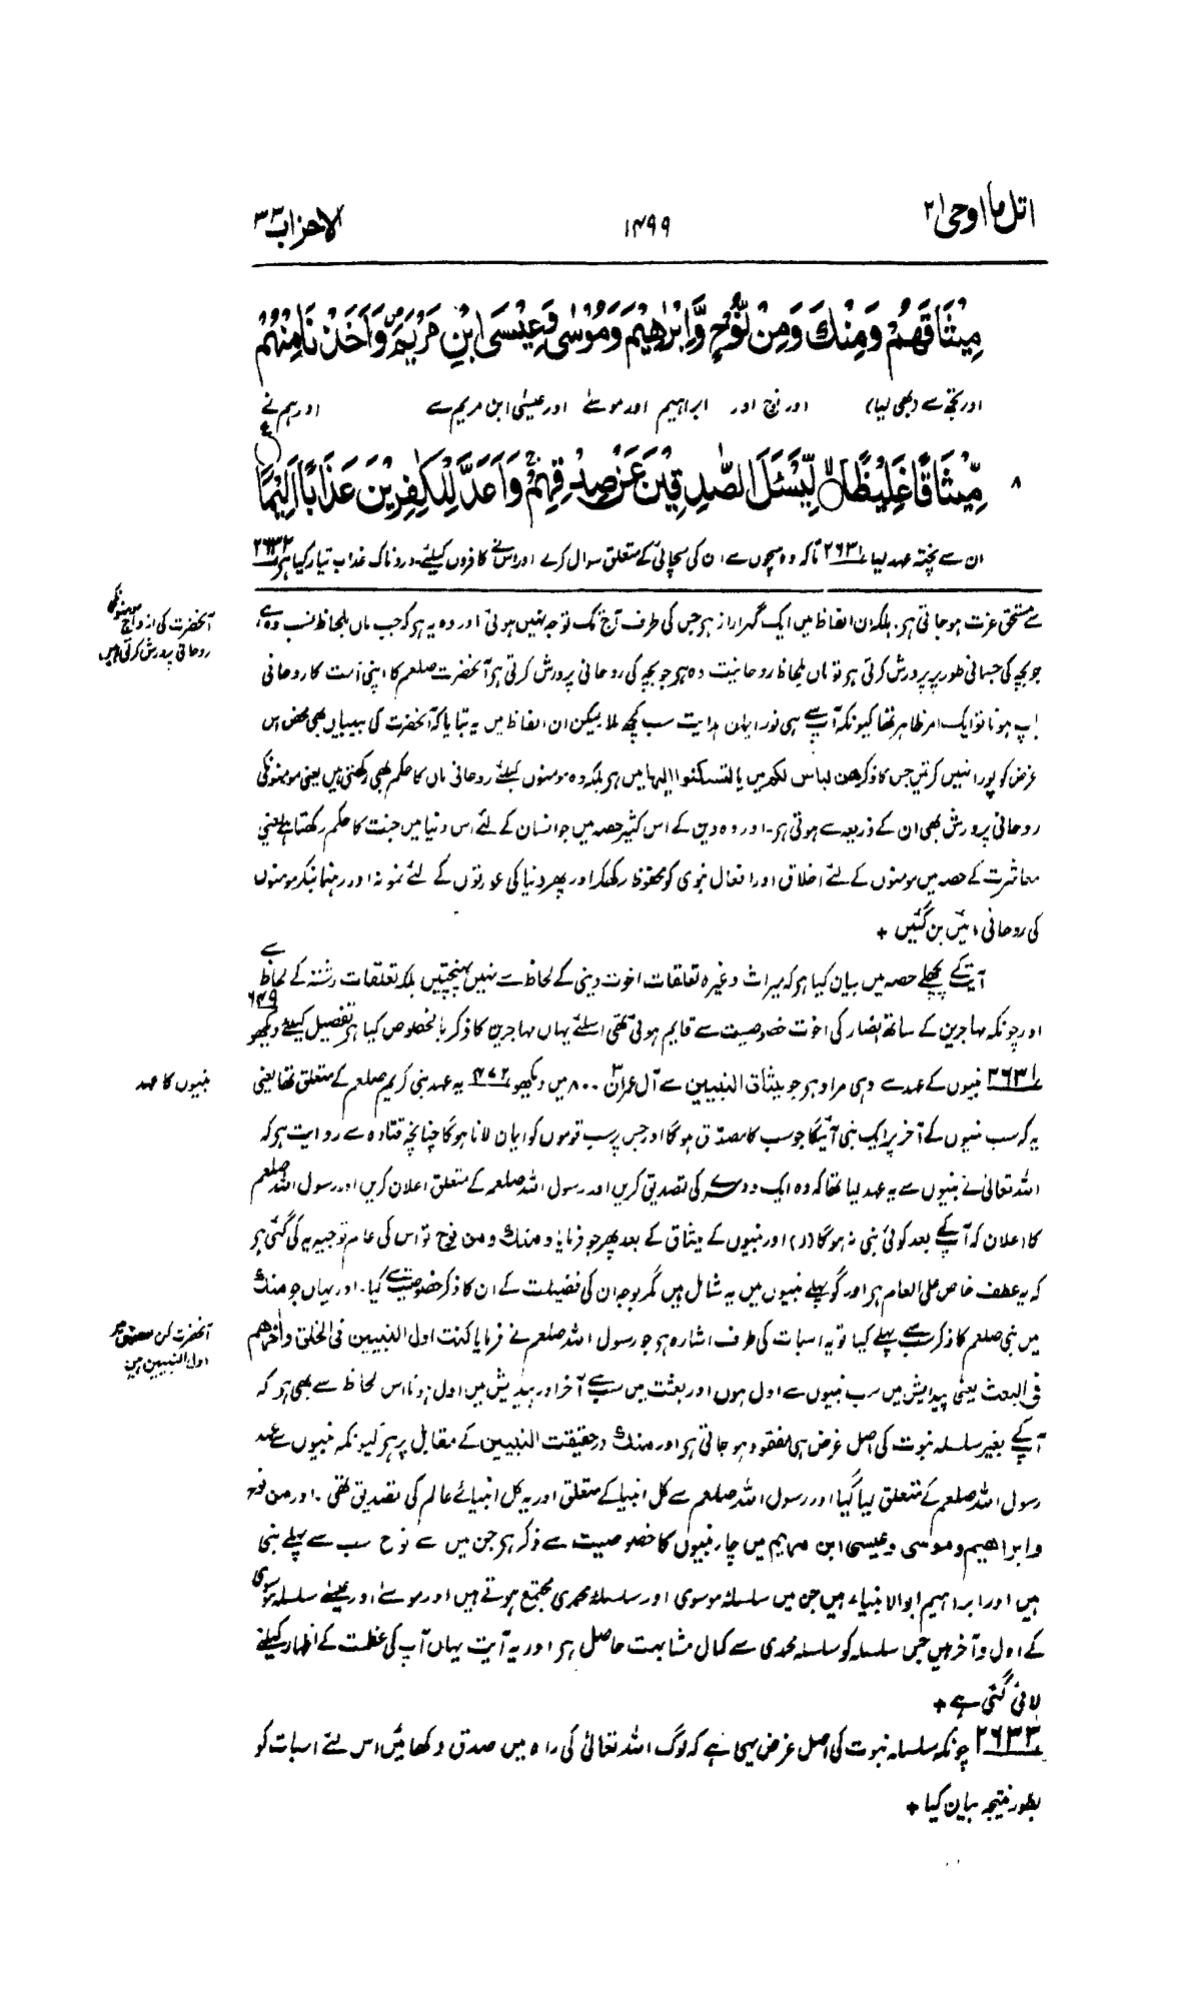 اتل ما اوحی ۲۱
۱۴۹۹
الاحزاب ۳۳
مِيْثَاقَهُمْ وَمِنْكَ وَمِنْ نُّوْحٍ وَّاِبْرٰهِيْمَ وَمُوْسٰى وَعِيْسَى ابْنِ مَرْيَمَ ۪ وَاَخَذْنَا مِنْهُمْ
اور تجھ سے (بھی لیا) اور نوح اور ابراہیم اور موسےٰ اور عیسٰی ابن مریم سے اور ہم نے
۸ مِّيْثَاقًا غَلِيْظًا ۙ لِّيَسْئَلَ الصّٰدِقِيْنَ عَنْ صِدْقِهِمْ ۚ وَاَعَدَّ لِلْكٰفِرِيْنَ عَذَابًا اَلِيْمًا
ان سے پختہ عہد لیا ۲۶۳۱ تاکہ وہ سچوں سے ان کی سچائی کے متعلق سوال کرے اور اس نے کافروں کیلئے دردناک عذاب تیار کیا ہر ۲۶۳۲
سے مستحق عزت ہو جاتی ہر۔ بلکہ ان الفاظ میں ایک گہرا راز ہر جس کی طرف آج تک توجہ نہیں ہوئی اور وہ یہ ہر کہ جب ماں بلحاظ نسب وہ ہے
آنحضرت کی ازواج مومنونکی
روحانی پرورش کرتی ہیں
جو بچہ کی جسمانی طور پر پرورش کرتی ہر تو ماں بلحاظ روحانیت وہ ہر جو بچہ کی روحانی پرورش کرتی ہر آنحضرت صلعم کا اپنی امت کا روحانی
باپ ہونا تو ایک امر ظاہر تھا کیونکہ آپ سے ہی نور ایمان ہدایت سب کچھ ملا لیکن ان الفاظ میں یہ بتایا کہ آنحضرت کی بیبیاں بھی محض اس
غرض کو پورا نہیں کرتیں جس کا ذکر ھن لباس لکم میں یا لتسکنوا الیھا میں ہر بلکہ وہ مومنوں کیلئے روحانی ماں کا حکم بھی رکھتی ہیں یعنی مومنونکی
روحانی پرورش بھی ان کے ذریعہ سے ہوتی ہر۔ اور وہ دین کے اس کثیر حصہ میں جو انسان کے لئے اس دنیا میں جنت کا حکم رکھتا ہے یعنی
معاشرت کے حصہ میں مومنوں کے لئے اخلاق اور افعال نبوی کو محفوظ رکھکر اور پھر دنیا کی عورتوں کے لئے نمونہ اور رہنما بنکر مومنوں
کی روحانی مائیں بن گئیں +
آیت کے پچھلے حصہ میں بیان کیا ہر کہ میراث وغیرہ تعلقات اخوت دینی کے لحاظ سے نہیں پہنچتیں بلکہ تعلقات رشتہ کے لحاظ سے
اور چونکہ مہاجرین کے ساتھ انصار کی اخوت خصوصیت سے قایم ہوئی تھی اسلئے یہاں مہاجرین کا ذکر بالخصوص کیا ہر تفصیل کیلئے دیکھو ۶۴۹
۲۶۳۱ نبیوں کے عہد سے وہی مراد ہر جو میثاق النبیین سے آل عمران ۸۰ میں دیکھو ۴۷۲ یہ عہد نبی کریم صلعم کے متعلق تھا یعنی
نبیوں کا عہد
یہ کہ سب نبیوں کے آخر پر ایک نبی آئیگا جو سب کا مصدق ہوگا اور جس پر سب قوموں کو ایمان لانا ہوگا چنانچہ قتادہ سے روایت ہر کہ
اللہ تعالیٰ نے نبیوں سے یہ عہد لیا تھا کہ وہ ایک دوسرے کی تصدیق کریں اور رسول اللہ صلعم کے متعلق اعلان کریں اور رسول اللہ صلعم
کا اعلان کہ آپ کے بعد کوئی نبی نہ ہوگا (د) اور نبیوں کے میثاق کے بعد پھر جو فرمایا و منك و من نوح تو اس کی عام توجیہ یہ کی گئی ہر
کہ یہ عطف خاص علی العام ہر اور گو پہلے نبیوں میں یہ شامل ہیں مگر بوجہ ان کی فضیلت کے ان کا ذکر خصوصیت سے کیا۔ اور یہاں جو منك
میں نبی صلعم کا ذکر سب سے پہلے کیا تو یہ اسبات کی طرف اشارہ ہر جو رسول اللہ صلعم نے فرمایا کنت اول النبیین فی الخلق و اٰخرھم
آنحضرت کن معنوں میں
اول النبیین ہیں
فی البعث یعنی پیدایش میں سب نبیوں سے اول ہوں اور بعثت میں سب سے آخر اور پیدیش میں اول ہونا اس لحاظ سے بھی ہر کہ
آپ کے بغیر سلسلہ نبوت کی اصل غرض ہی مفقود ہو جاتی ہر اور منك در حقیقت النبیین کے مقابل پر ہر کیونکہ نبیوں سے عہد
رسول اللہ صلعم کے متعلق لیا گیا اور رسول اللہ صلعم سے کل انبیا کے متعلق اور یہ کل انبیائے عالم کی تصدیق تھی۔ اور من نوح
و ابراھیم و موسی و عیسی ابن مریم میں چار نبیوں کا خصوصیت سے ذکر ہر جن میں سے نوح سب سے پہلے نبی
ہیں اور ابراہیم ابوالانبیاء ہیں جن میں سلسلہ موسوی اور سلسلہ محمدی مجتمع ہوتے ہیں اور موسےٰ اور عیسےٰ سلسلہ موسوی
کے اول و آخر ہیں جس سلسلہ کو سلسلہ محمدی سے کمال مشابہت حاصل ہر اور یہ آیت یہاں آپ کی عظمت کے اظہار کیلئے
لائی گئی ہے +
۲۶۳۲ چونکہ سلسلہ نبوت کی اصل غرض یہی ہے کہ لوگ اللہ تعالیٰ کی راہ میں صدق دکھائیں اس لئے اسبات کو
بطور نتیجہ بیان کیا +